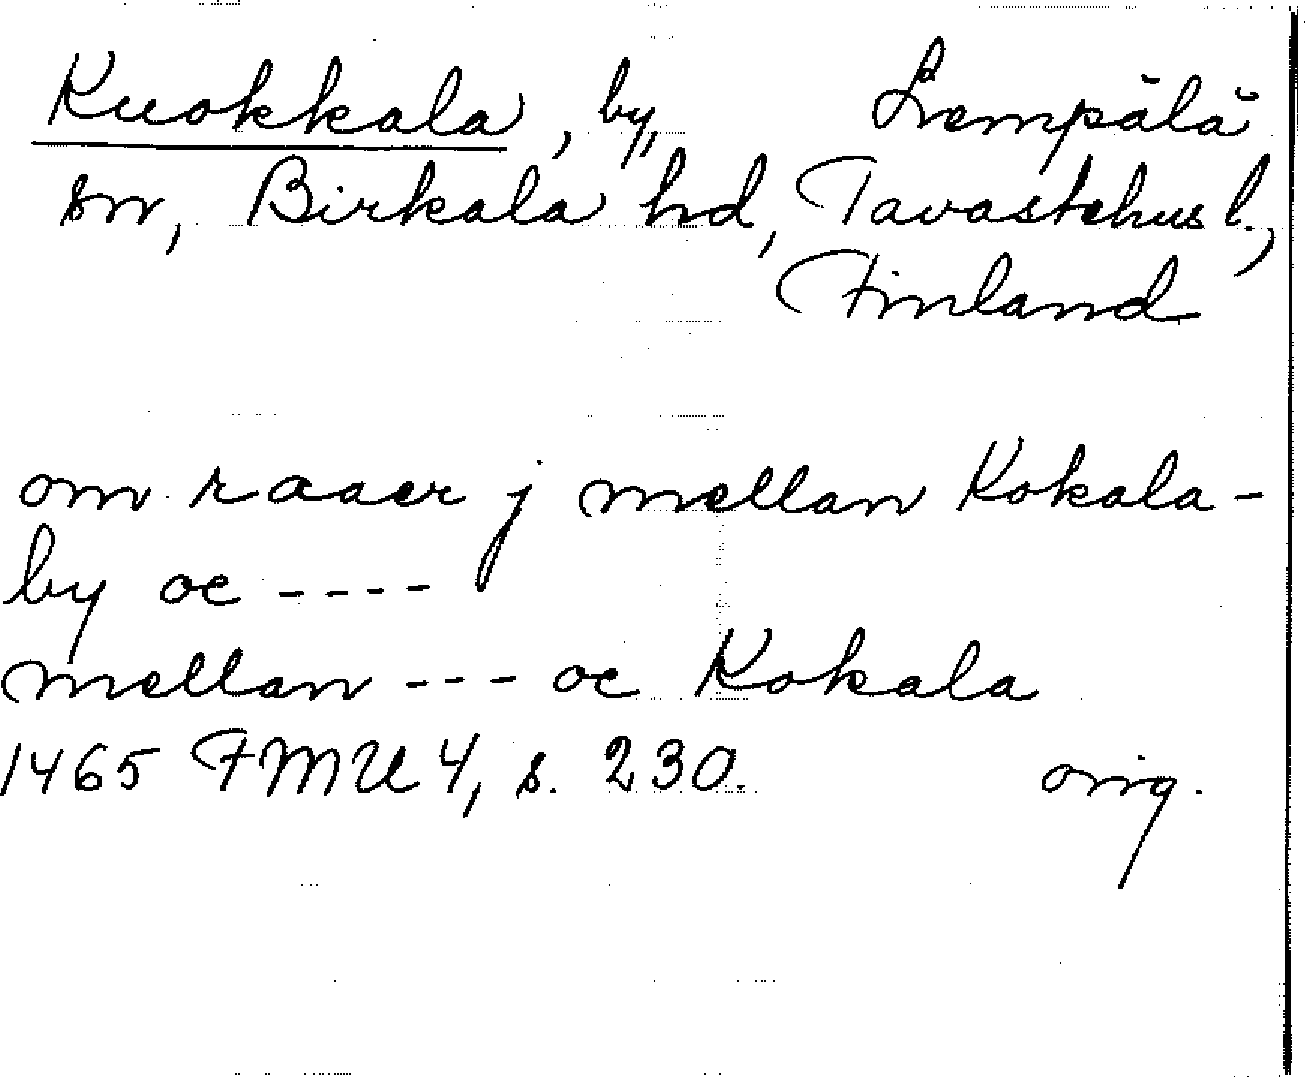 Kuokkala, by, Lempälä
sn, Birkala hd, Tavastehus l.,
Finland
om raaer j mellan Kokala-
by oc ----
mellan --- oc Kokala
1465 FMU 4, s. 230. orig.